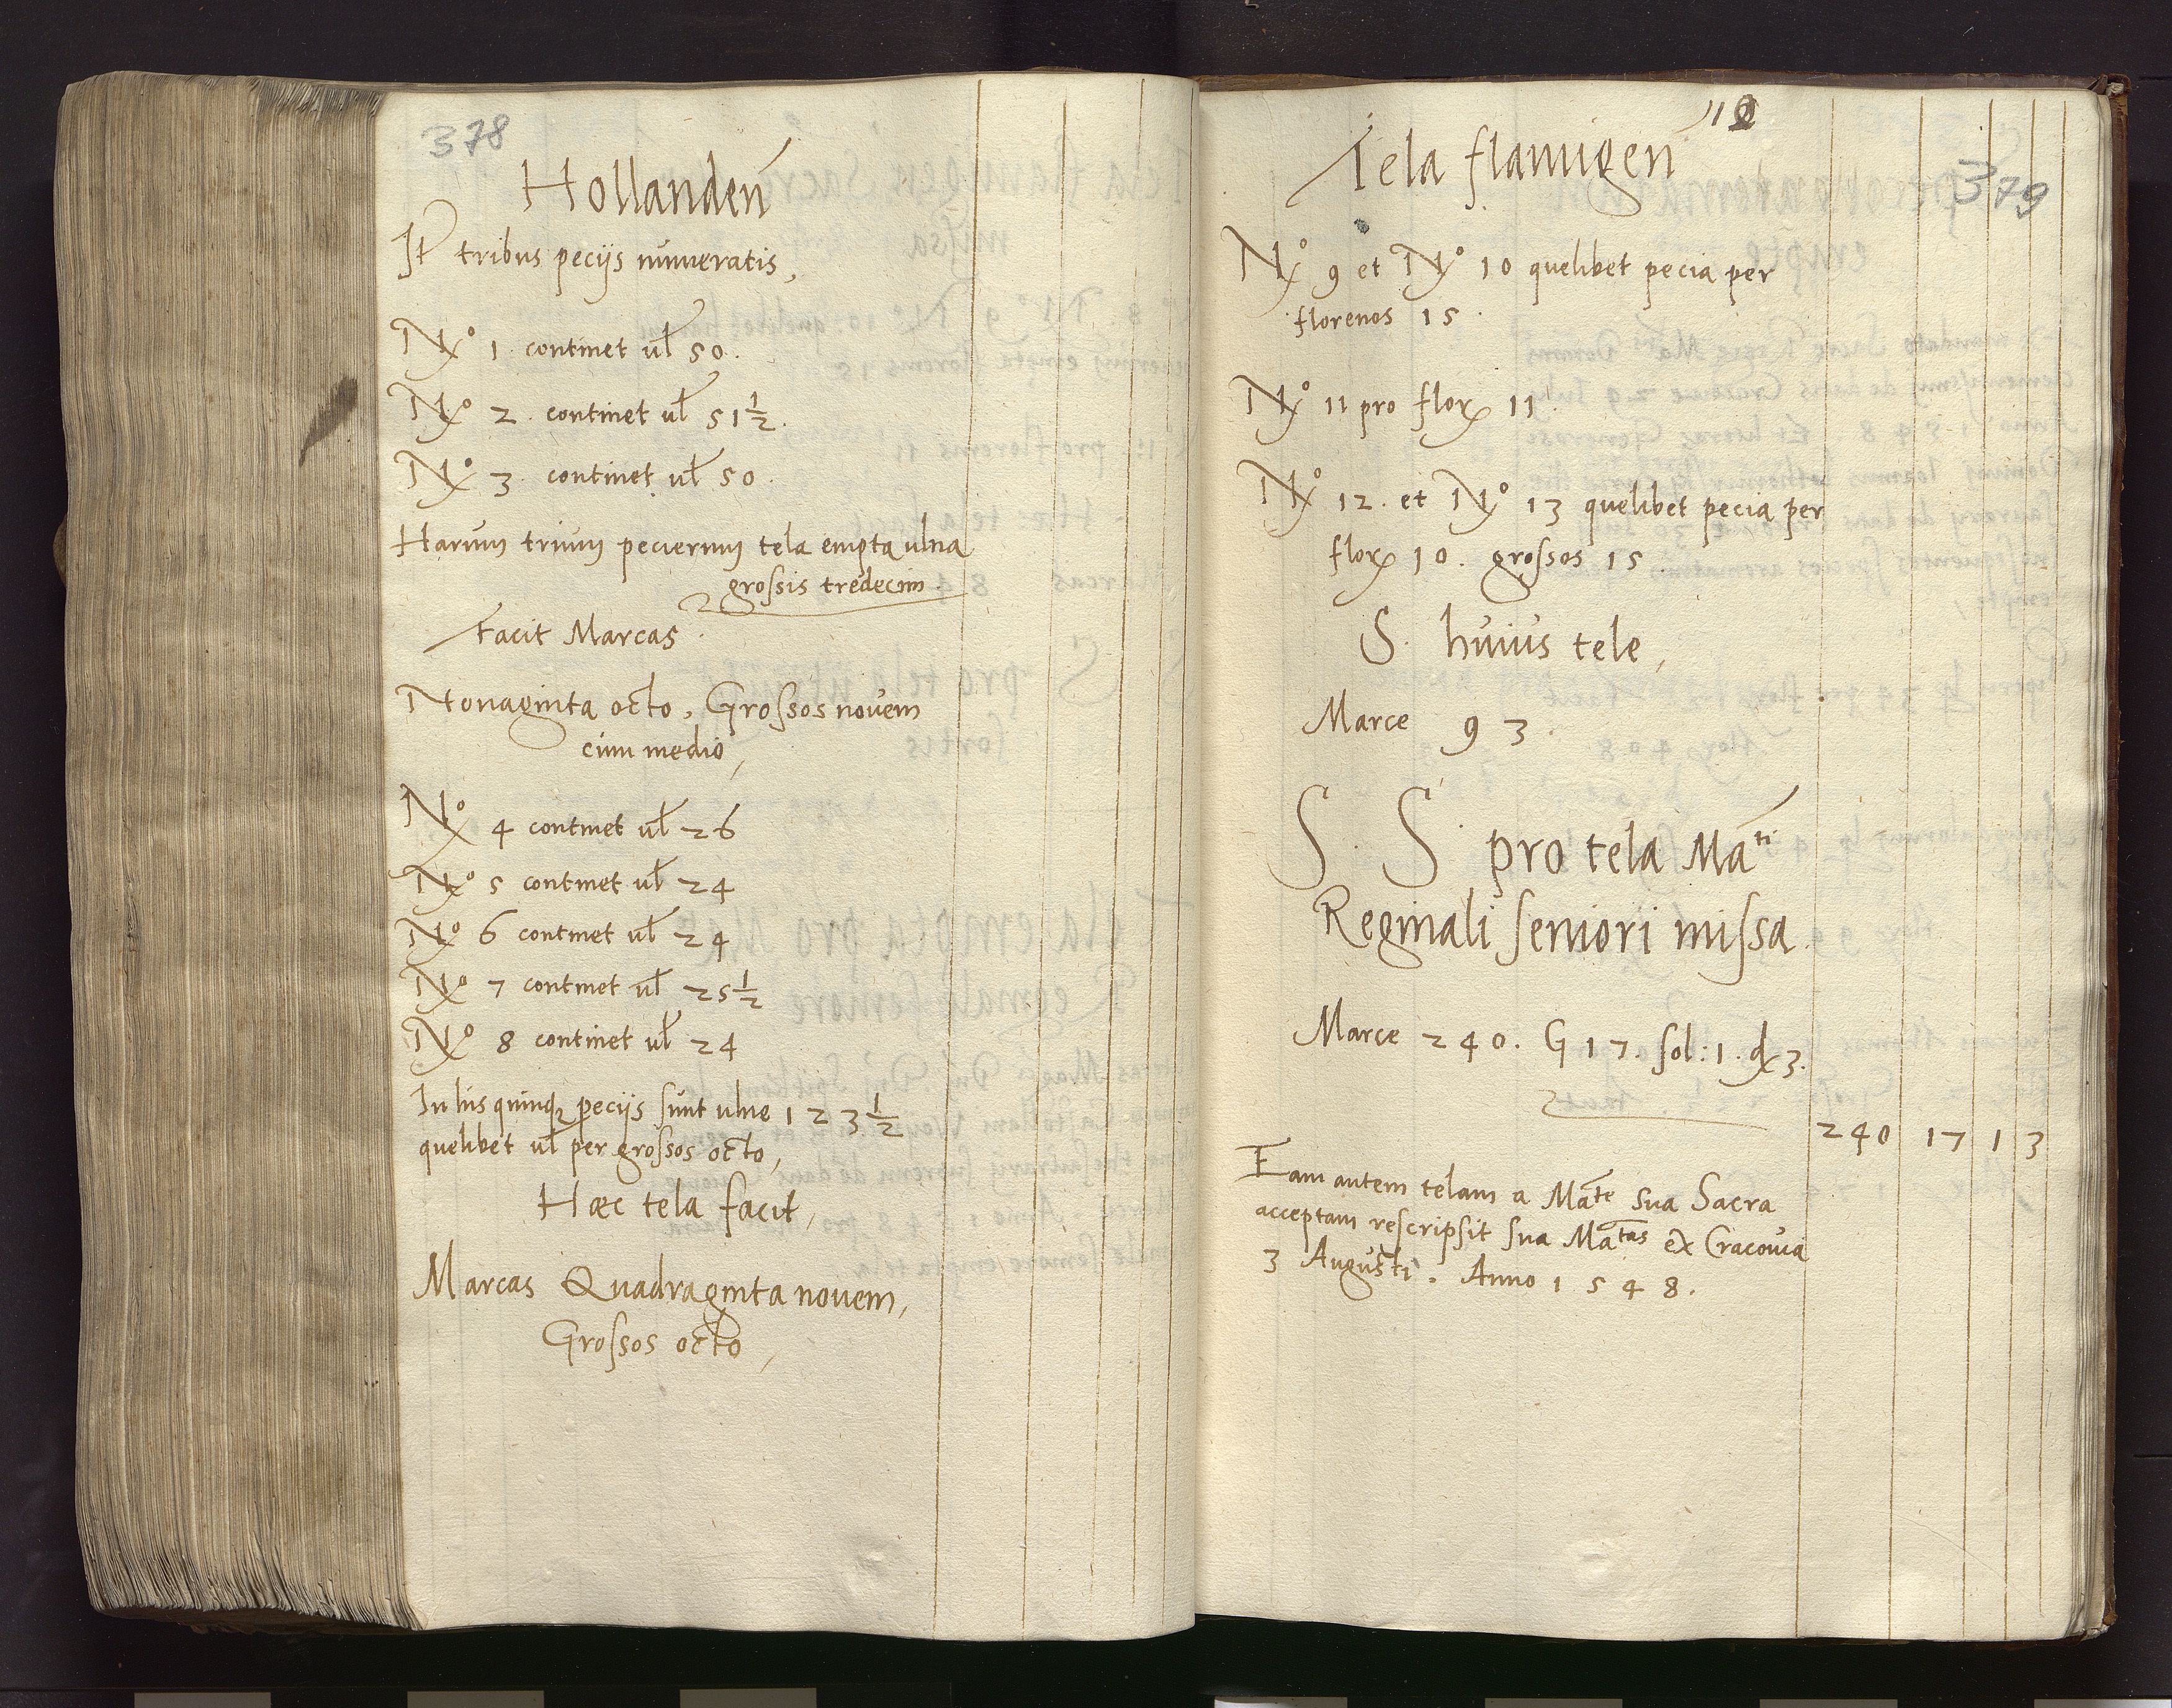 378
Hollandeñ
It tribus pecijs numeratis,
No 1. continet ul 50.
No 2. continet ul 51 1/2.
No 3. continet ul 50.
Harum trium peciernm tela empta ulna
grossis tredecim.
Facit Marcas.
Nonaginta octo, Grossos novem
cum medio,
No 4 continet ul 26
No 5 continet ul 24
No 6 continet ul 24
No 7 continet ul 25 1/2
No 8 continet ul 24
In his quinq pecijs sunt ulne 123 1/2
quelibet ul per grossos octo,
Hæc tela facit,
Marcas Quadraginta novem,
Grossos octo,
Tela flamigeñ
379
No 9 et No 10 quelibet pecia per
florenos 15.
No 11 pro flor 11.
No 12. et No 13 quelibet pecia per
flor 10. grossos 15.
S. huius tele,
Marce 93.
S. S. pro tela Ma^ti
Reginali seniori missa.
Marce 240. G 17. sol: 1. d 3.
240 17 1 3
Eam autem telam a Ma^te sua Sacra
acceptam rescripsit sua Ma^tas ex Cracovia
3 Augusti. Anno 1548.